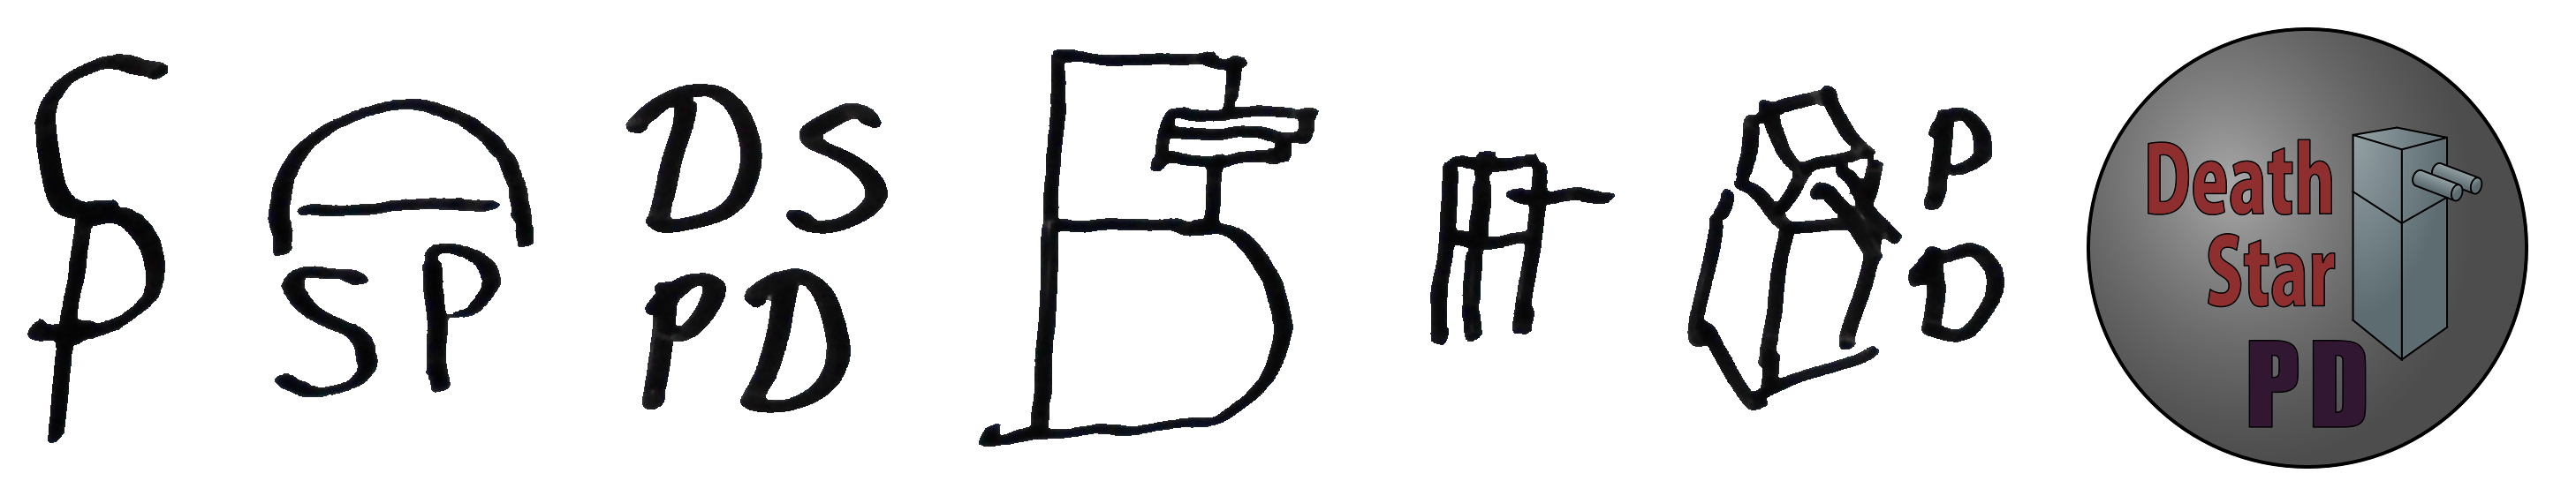 S P
D S
P D
P
D
Death
Star
PD